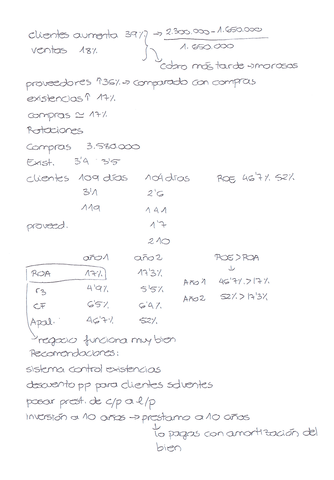 clientes aumenta 39% → 2.300.000 - 1.650.000
ventas 18% 1.650.000
→ cobro más tarde → morosos
proveedores ↑ 36% → comparado con compras
existencias ↑ 17%
compras ≃ 17%
Rotaciones
Compras 3.580.000
Exist. 3'4 3'5
clientes 109 días 104 días ROE 46'7% 52%
3'1 2'6
119 141
proveed. 1'7
210
año 1 año 2 ROE > ROA
ROA 17% 17'3% ↓
r3 4'9% 5'5% Año 1 46'7% > 17%
CF 65% 64% Año 2 52% > 17'3%
Apal. 46'7% 52%
→ negocio funciona muy bien
Recomendaciones:
sistema control existencias
descuento pp para clientes solventes
pasar prest. de c/p a l/p
inversión a 10 años → préstamo a 10 años
↳ lo pagas con amortización del
bien